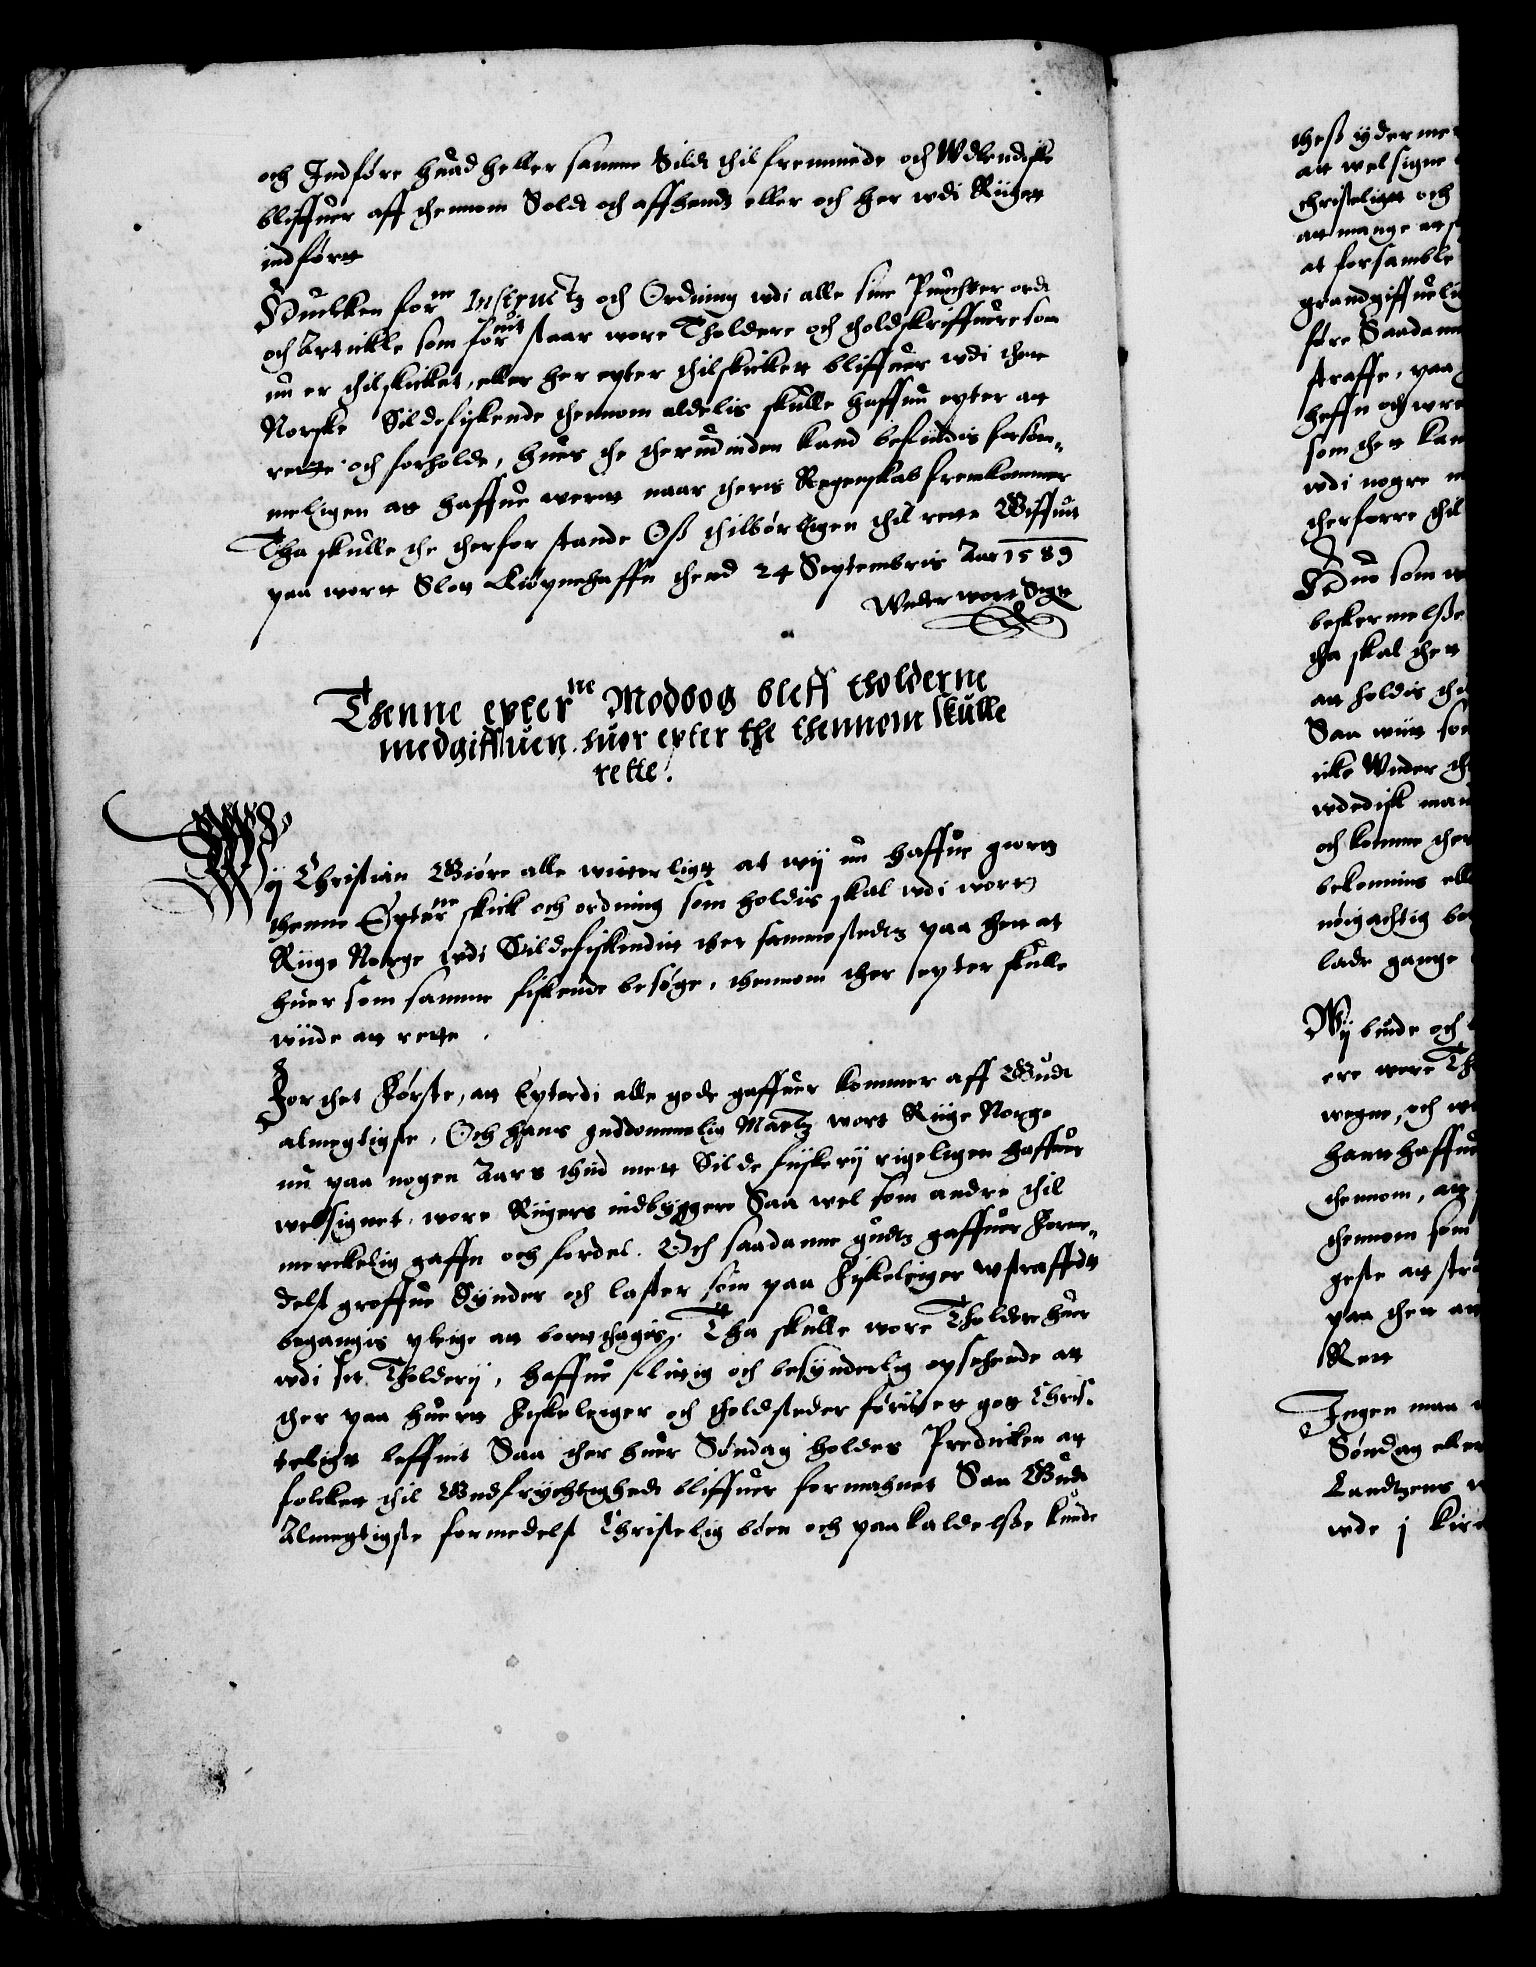 och Indføre huad heller samme Sild thil fremmede och Wdlendiske
bliffuer aff thennom Sold och affhendt eller och her wdi Riigett
indførtt
Huilcken forne Instructz och Ordning wdi alle sine Puncther ord
och Artickle som forschreffuit staar wore Tholdere och tholdskriffuere som
nu er thilskicket, eller her epter thilskicket bliffuer wdi thett
Norske Sildefiskende thennom aldelis skulle haffue epter att
rette och forholde, huer the therudinden kand befindis forsøm-
meligen att haffue werett naar theris Regenskab fremkommer
Tha skulle the therfor stande Oß thilbørligen thil rette Giffuit
paa wortt Slott Kiøpnehaffn thend 24 Septembris Aar 1589
Wnder wort Sigt
Thenne epterne Modbog bleff tholderne
medgiffuen. huor epter the thennom skulle
rette.
Wij Christian Giøre alle witterligtt at wij nu haffue giortt
thenne Epterne skick och ordning som holdis skal wdi wortt
Riige Norge wdi Sildefiskendit ther sammestedtz paa thett at
huer som samme fiskende besøge, thennom ther epter skulle
wiide att rette.
For thet Første, att Epterdi alle gode gaffuer kommer aff Gud
almegtigste, Och hans guddommelig Maetz wort Riige Norge
nu paa nogen Aars thid mett Silde fiiskerij rigeligen haffuer
welsignet, wore Riigers indbyggere Saa wel som andre thil
merckelig gaffn och fordel. Och saadanne gudtz gaffuer Forme-
delst groffue Synder och laster som paa Fiskeleiger wstraffedt
begangis pleige att borttthagis, Tha skulle wore Tholdere huer
wdi sit Tholderij, haffue flittig och besynderlig opseende att
ther paa huertt Fiskeleiger och tholdsteder føris ett gott Chris-
teligtt leffnit Saa ther huer Søndag holdes Predicken att
folckett thil Gudfrychtighedt bliffuer formahnet Saa Gud
Almegtigste formedelst Christelig bøen och paakaldelsße kunde
theß ydermer
att welsigne
christeligtt och
att mange att
at forsamble
grandgiffuelig
føre Saadann
straffe, paa
heffn och wre
som thett kan
wdi nogre m
therforre thil
Huo som w
beskermelsße
tha skal thett
att holdis the
Saa wiitt som
icke Wnder th
wdedisk man
och komme ther
bekommis ell
nøigachtig bo
lade gange
Wij biude och
ere wore Th
wegne, och we
hand haffue
thennom, att
thennom som
geste att str
paa thett an
Rett
Ingen maa
Søndag eller
Landtzens
wde j kirc